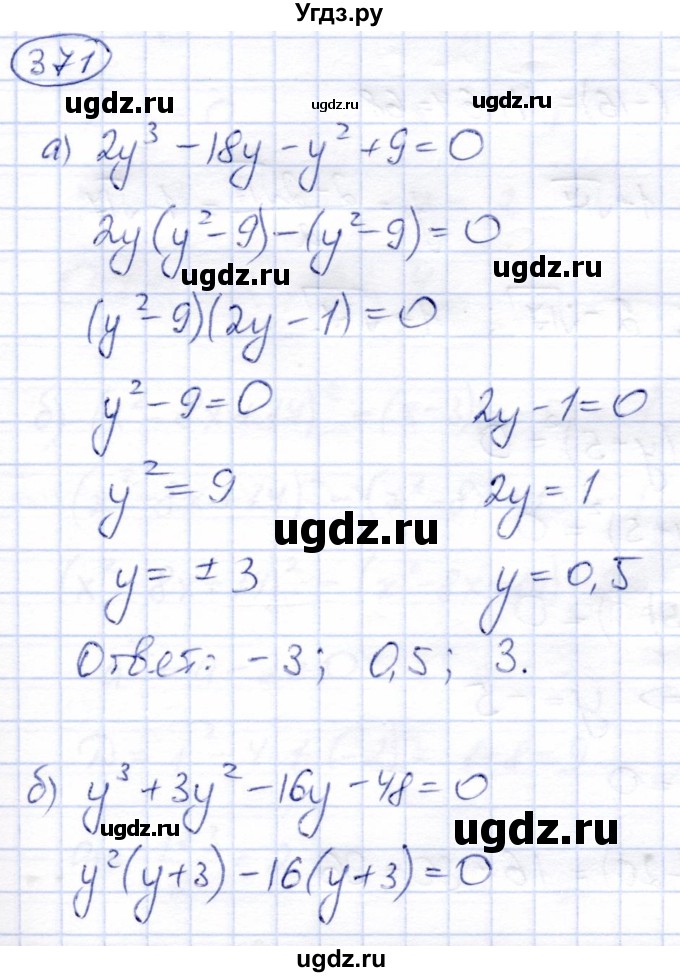 Угдз.ру
371
ugdz.ru ugdz.ru ugdz.ru
а) 2y³ − 18y − y² + 9 = 0
2y(y² − 9) − (y² − 9) = 0
ugdz.ru ugdz.ru
(y² − 9)(2y − 1) = 0
y² − 9 = 0 2y − 1 = 0
y² = 9 2y = 1
ugdz.ru
y = ± 3 y = 0,5
Ответ: − 3; 0,5; 3.
б) y³ + 3y² − 16y − 48 = 0
ugdz.ru ugdz.ru
y²(y + 3) − 16(y + 3) = 0
ugdz.ru